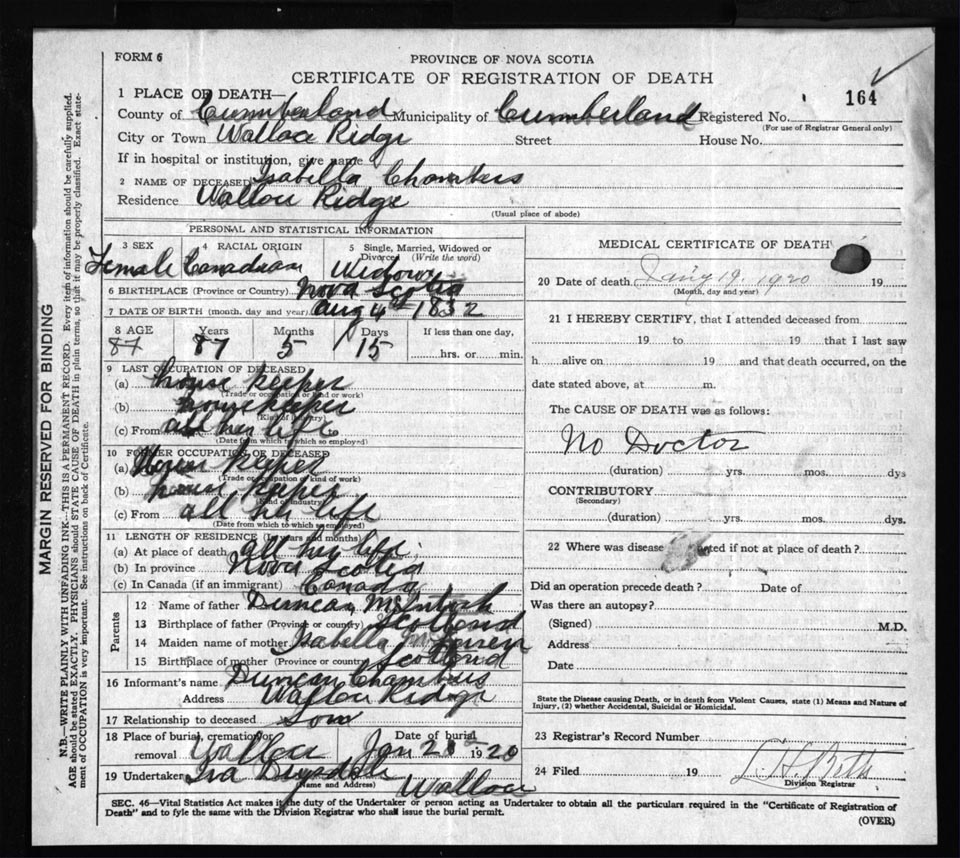 FORM 6
PROVINCE OF NOVA SCOTIA
CERTIFICATE OF REGISTRATION OF DEATH
164
1 PLACE OF DEATH—
County of Cumberland Municipality of Cumberland Registered No.
(For use of Registrar General only)
City or Town Wallace Ridge Street House No.
If in hospital or institution, give name
2 NAME OF DECEASED Isabella Chambers
Residence Wallace Ridge
(Usual place of abode)
PERSONAL AND STATISTICAL INFORMATION
3 SEX 4 RACIAL ORIGIN 5 Single, Married, Widowed or Divorced (Write the word)
Female Canadian Widow
6 BIRTHPLACE (Province or Country) Nova Scotia
7 DATE OF BIRTH (month, day and year) Aug 4th 1832
8 AGE Years Months Days If less than one day,
87 87 5 15 hrs. or min.
9 LAST OCCUPATION OF DECEASED
(a) house keeper
(Trade or occupation or kind or work)
(b) house keeper
(Kind of industry)
(c) From all her life
(Date from which to which so employed)
10 FORMER OCCUPATION OF DECEASED
(a) House keeper
(Trade or occupation or kind of work)
(b) house keeper
(Kind of industry)
(c) From all her life
(Date from which to which so employed)
11 LENGTH OF RESIDENCE (In years and months)
(a) At place of death all her life
(b) In province Nova Scotia
(c) In Canada (if an immigrant) Canada
Parents
12 Name of father Duncan McIntosh
13 Birthplace of father (Province or country) Scotland
14 Maiden name of mother Isabella
15 Birthplace of mother (Province or country) Scotland
16 Informant's name Duncan Chambers
Address Wallace Ridge
17 Relationship to deceased Son
18 Place of burial, cremation or removal Wallace Date of burial Jan 21 1920
19 Undertaker Ira Drysdale Wallace
(Name and Address)
MEDICAL CERTIFICATE OF DEATH
20 Date of death Jany 19. 1920 19
(Month, day and year)
21 I HEREBY CERTIFY, that I attended deceased from
19 to 19 that I last saw
h alive on 19 and that death occurred, on the
date stated above, at m.
The CAUSE OF DEATH was as follows:
No Doctor
(duration) yrs. mos. dys
CONTRIBUTORY
(Secondary)
(duration) yrs. mos. dys.
22 Where was disease contracted if not at place of death?
Did an operation precede death? Date of
Was there an autopsy?
(Signed) M.D.
Address
Date
State the Disease causing Death, or in death from Violent Causes, state (1) Means and Nature of
Injury, (2) whether Accidental, Suicidal or Homicidal.
23 Registrar's Record Number
24 Filed 19
Division Registrar
SEC. 46—Vital Statistics Act makes it the duty of the Undertaker or person acting as Undertaker to obtain all the particulars required in the "Certificate of Registration of
Death" and to fyle the same with the Division Registrar who shall issue the burial permit.
(OVER)
MARGIN RESERVED FOR BINDING
N.B.—WRITE PLAINLY WITH UNFADING INK—THIS IS A PERMANENT RECORD. Every item of information should be carefully supplied.
AGE should be stated EXACTLY. PHYSICIANS should STATE CAUSE OF DEATH in plain terms, so that it may be properly classified. Exact state-
ment of OCCUPATION is very important. See instructions on back of Certificate.